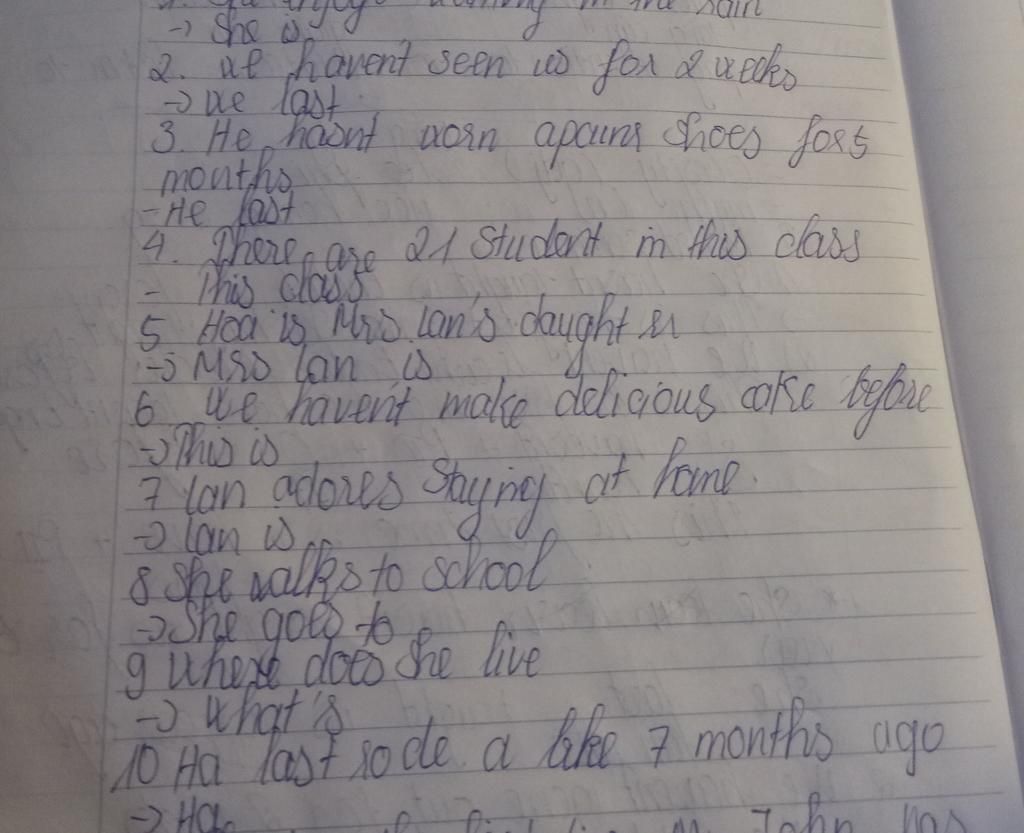 1. She enjoys in the rain
→ She is
2. We haven't seen us for 2 weeks
→ We last
3. He hasn't worn a shoes for 5
months
- He last
4. There are 21 student in this class
- This class
5 Hoa is Mrs. Lan's daught er
→ Mrs Lan is
6 We haven't make delicious cake before
→ This is
7 Lan adores staying at home.
→ Lan is
8 She walks to school
→ She goes to
9 Where does she live
→ What's
10 Ha last rode a bike 7 months ago
→ Ha
John has